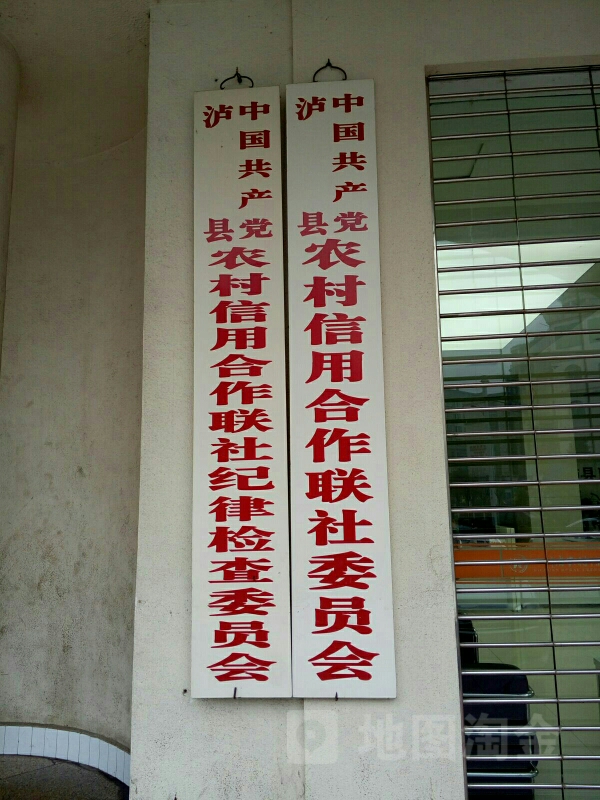 中国共产党
泸县
农村信用合作联社委员会
中国共产党
泸县
农村信用合作联社纪律检查委员会
地图淘金